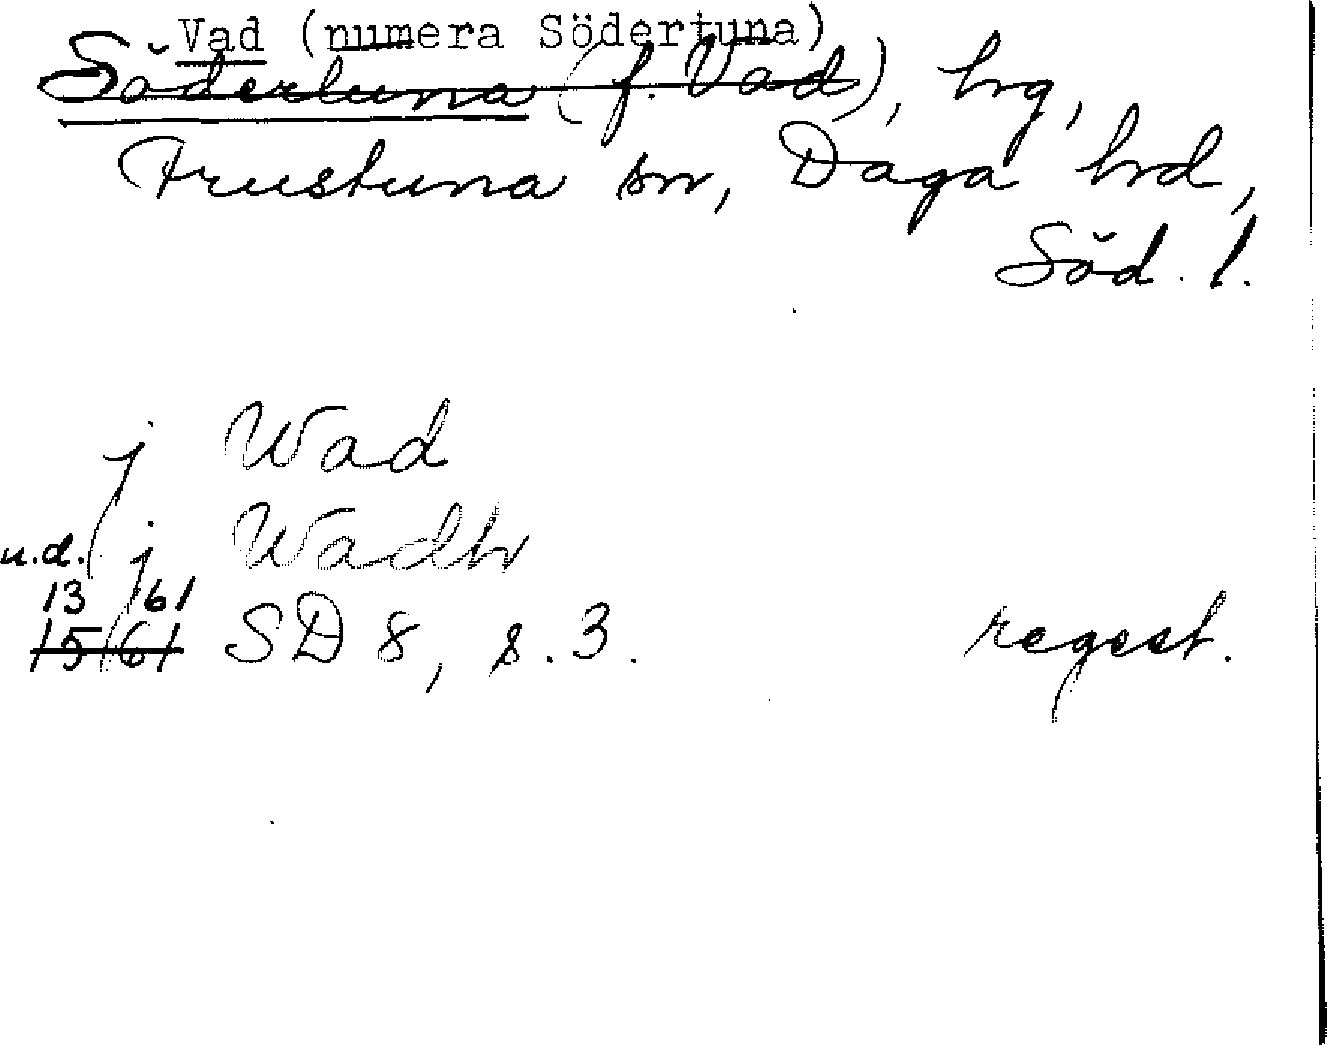 Vad (numera Södertuna)
Södertuna (f. Vad), hg,
Frustuna sn, Daga hd,
Söd. l.
j Wad
u.d. j Wadh
13 61
15 61 SD 8, s. 3. regest.